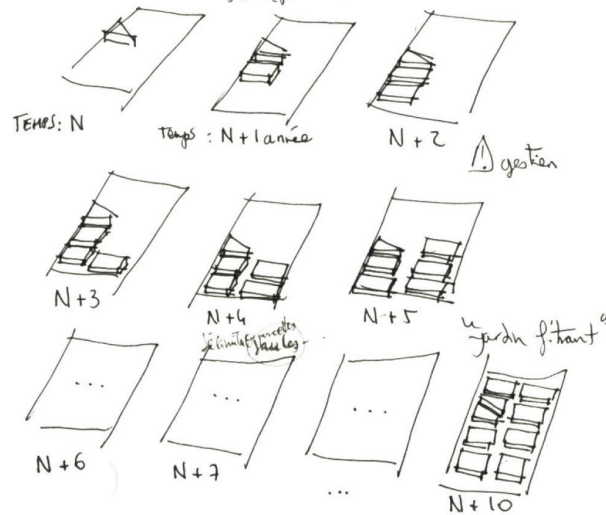 TEMPS: N
Temps : N+1 année
N+2
⚠ gestion
N+3
N+4
N+5
"jardin filtrant"
...
...
...
N+6
N+7
...
N+10